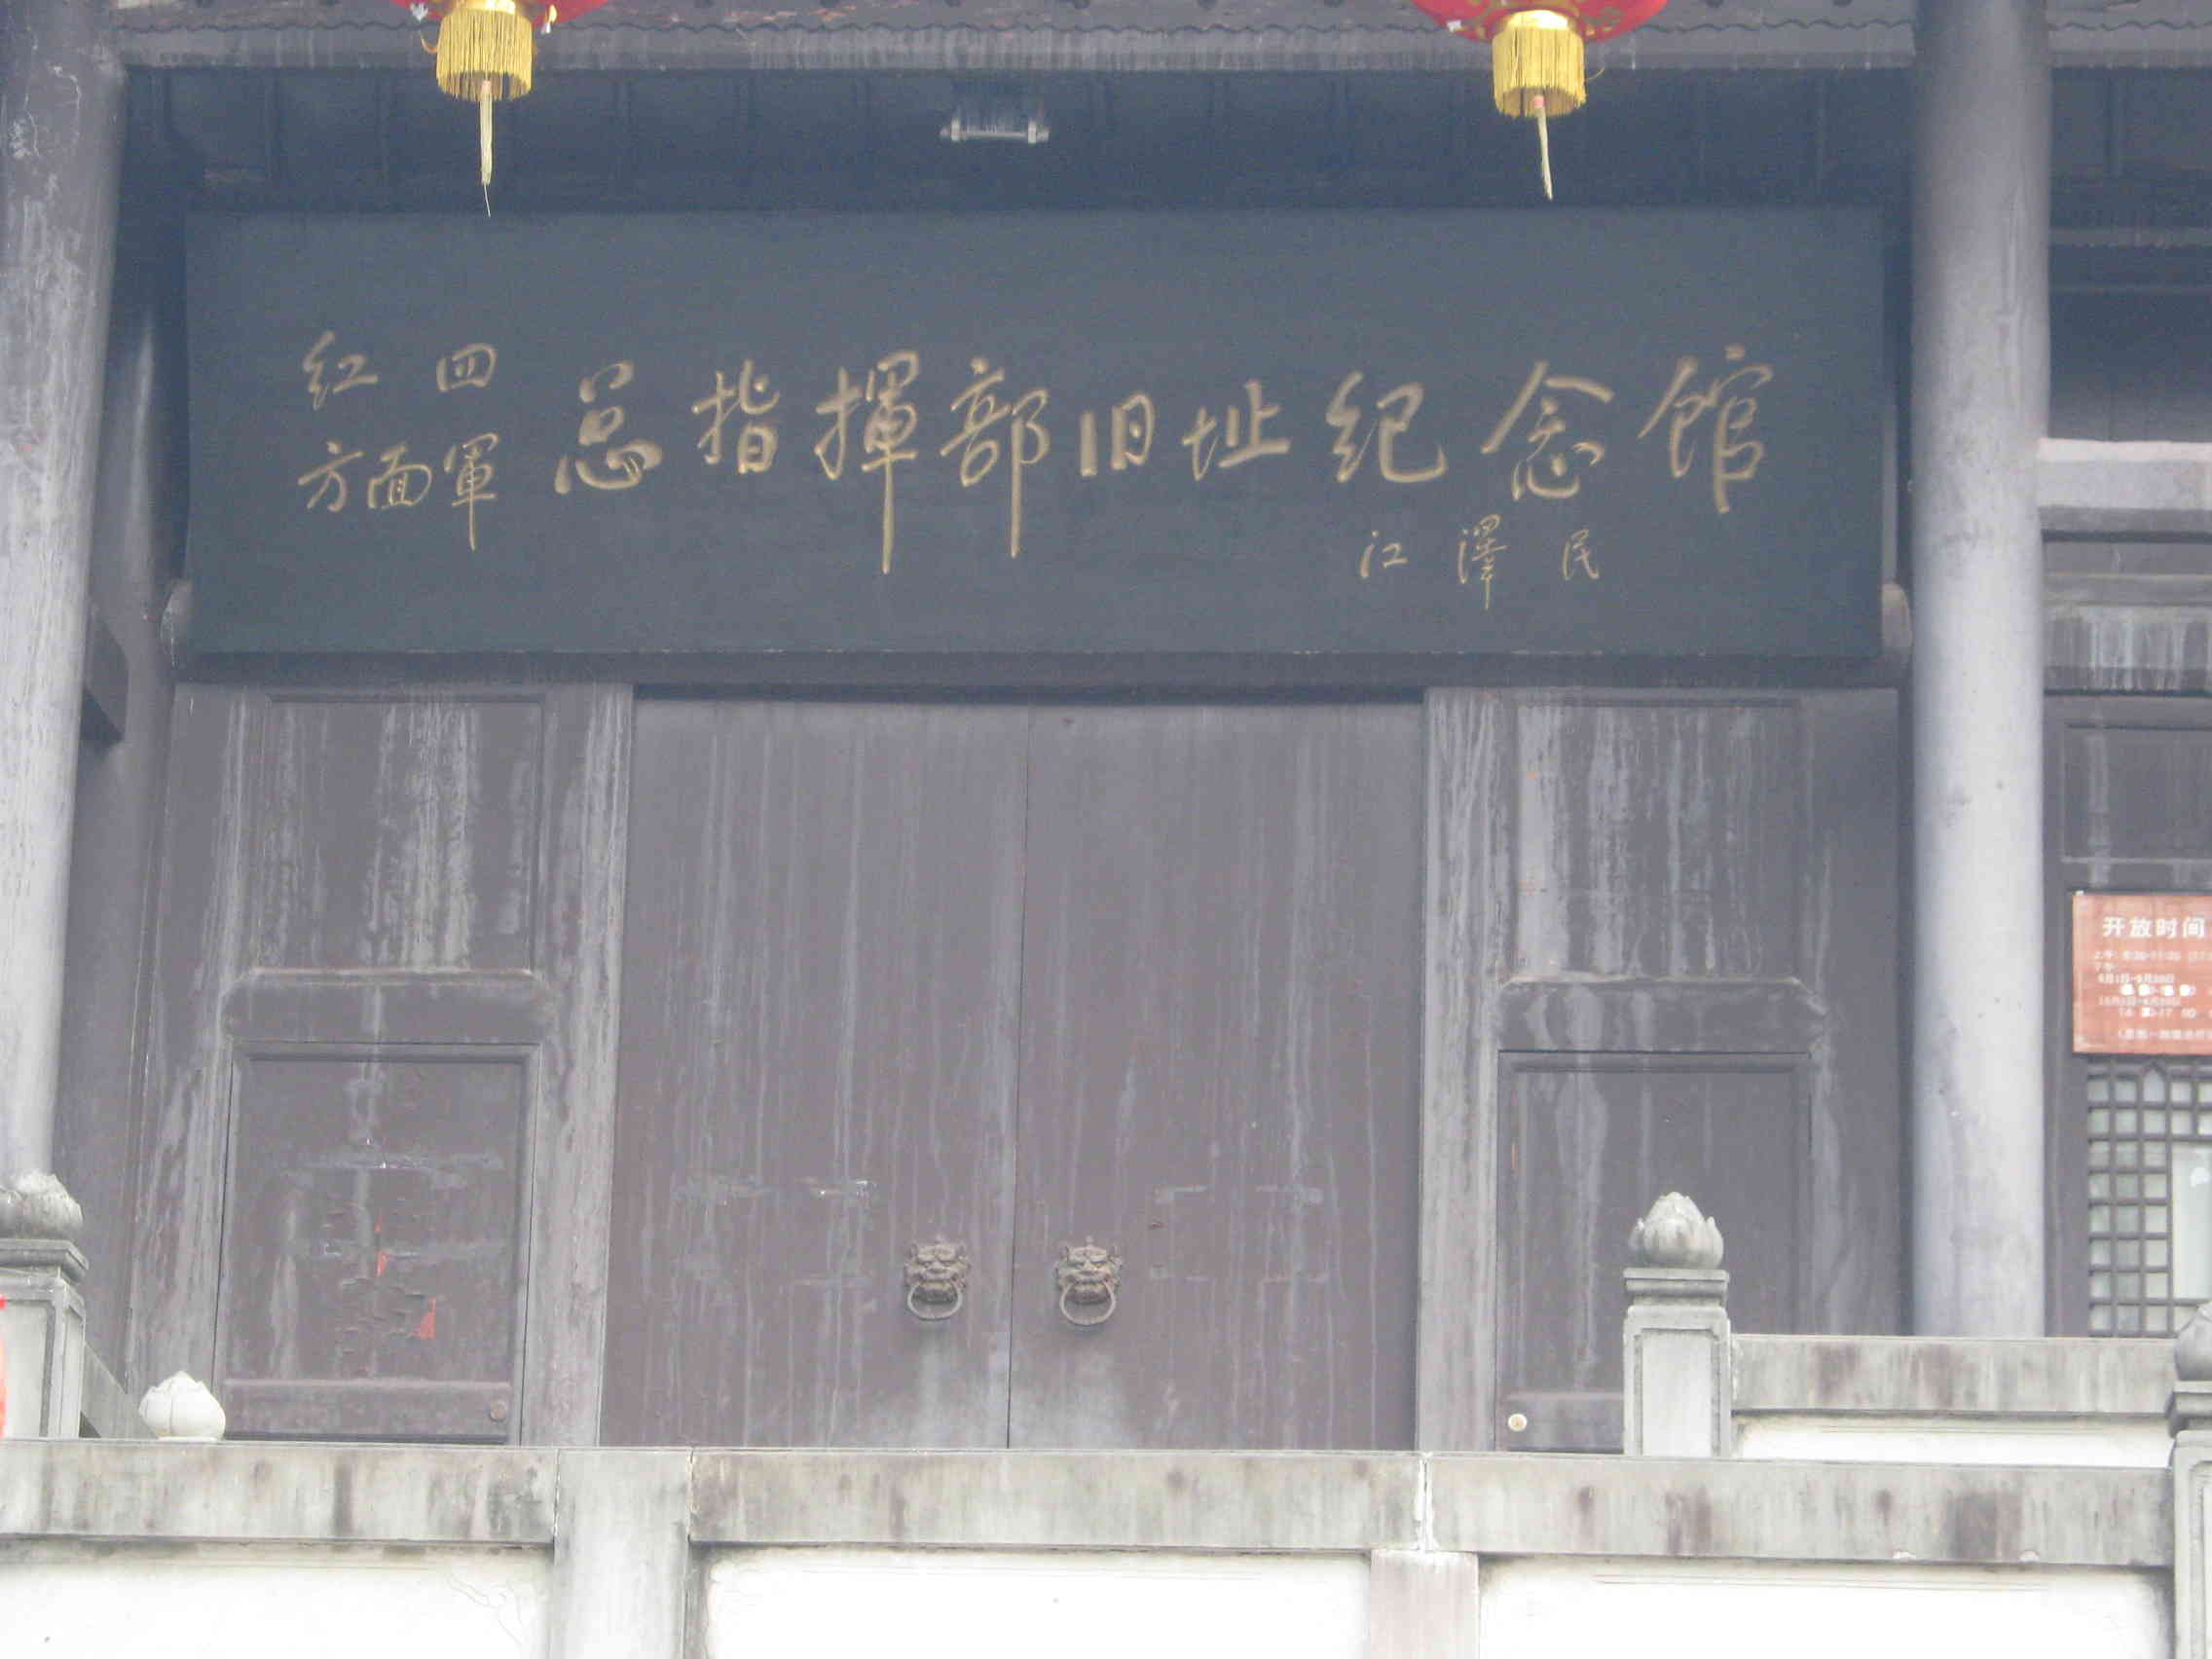 红四方面軍总指揮部旧址纪念馆
江澤民
开放时间